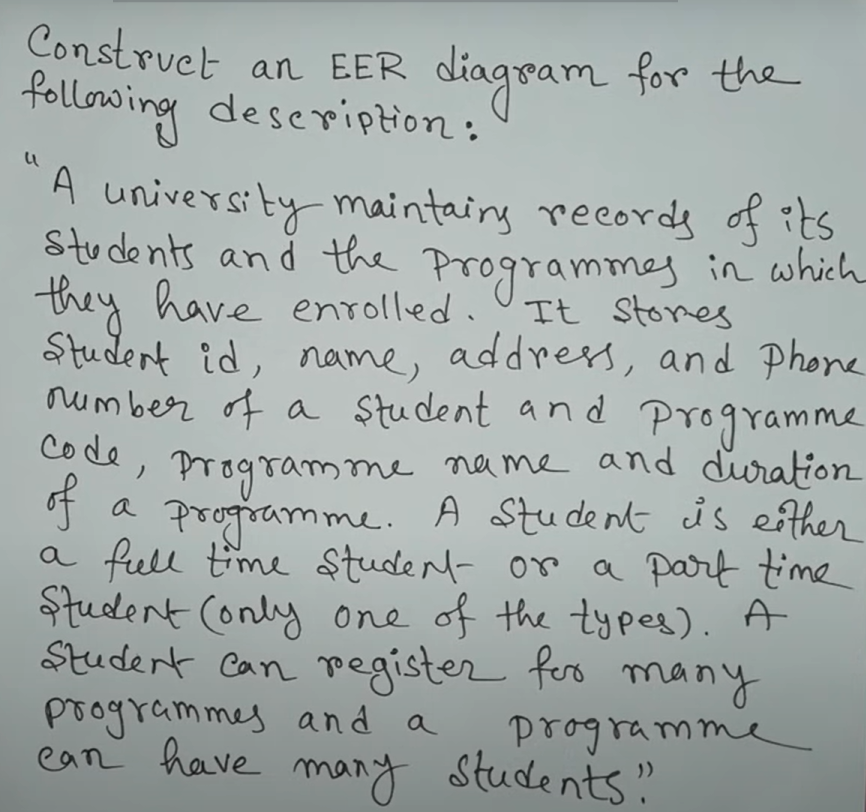 Construct an EER diagram for the
following description:
"A university maintains records of its
Students and the programmes in which
they have enrolled. It stores
Student id, name, address, and Phone
number of a student and programme
Code, programme name and duration
of a programme. A Student is either
a full time Student or a part time
Student (only one of the types). A
Student can register for many
programmes and a programme
can have many students".